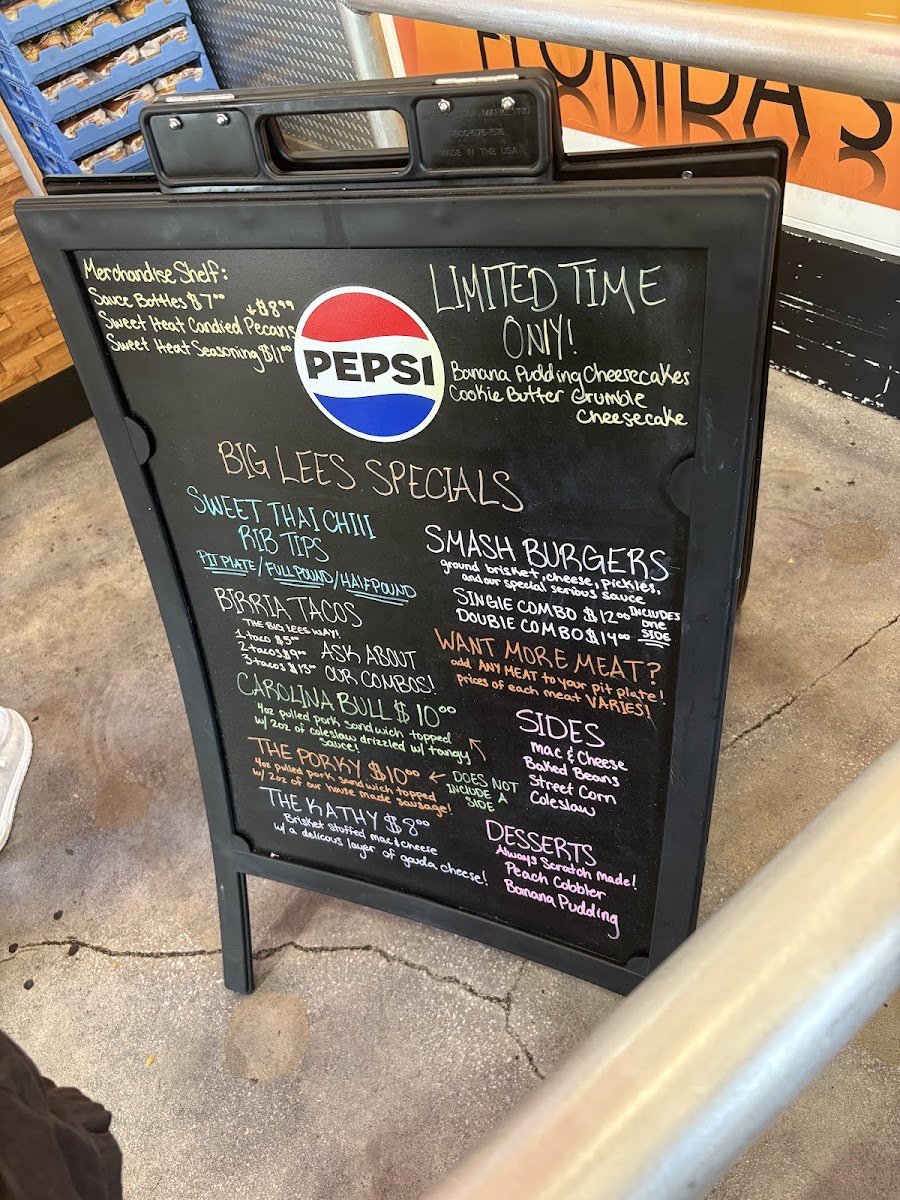 FLORIDA'S
MADE IN THE USA
Merchandise Shelf:
Sauce Bottles $7⁰⁰
↓$8⁹⁹
Sweet Heat Candied Pecans
Sweet Heat Seasoning $11⁰⁰
PEPSI
LIMITED TIME
ONLY!
Banana Pudding Cheesecakes
Cookie Butter Crumble
Cheesecake
BIG LEES SPECIALS
SWEET THAI CHILI
RIB TIPS
PIT PLATE/FULL POUND/HALF POUND
BIRRIA TACOS
THE BIG LEES WAY!
1 taco $5⁰⁰
2 tacos $9⁰⁰
3 tacos $13⁰⁰
ASK ABOUT
OUR COMBOS!
CAROLINA BULL $10⁰⁰
4oz pulled pork sandwich topped
w/ 2oz of coleslaw drizzled w/ tangy
sauce!
THE PORKY $10⁰⁰
4oz pulled pork sandwich topped
w/ 2oz of our house made sausage!
← DOES NOT
INCLUDE A
SIDE
THE KATHY $8⁰⁰
Brisket stuffed mac & cheese
w/ a delicous layer of gouda cheese!
SMASH BURGERS
ground brisket, cheese, pickles,
and our special serious sauce
SINGLE COMBO $12⁰⁰
DOUBLE COMBO $14⁰⁰
INCLUDES
one
SIDE
WANT MORE MEAT?
add ANY MEAT to your pit plate!
prices of each meat VARIES!
SIDES
Mac & Cheese
Baked Beans
Street Corn
Coleslaw
DESSERTS
Always Scratch Made!
Peach Cobbler
Banana Pudding